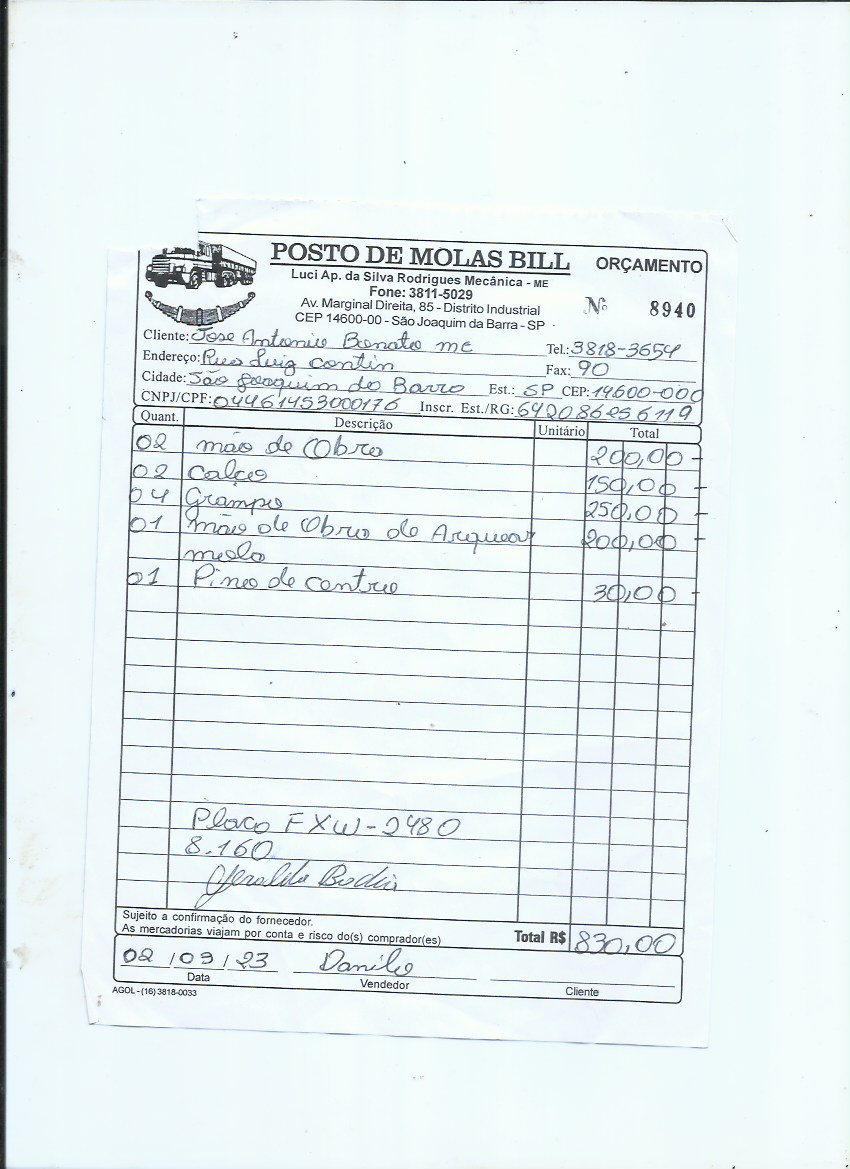 POSTO DE MOLAS BILL
ORÇAMENTO
Luci Ap. da Silva Rodrigues Mecânica - ME
Fone: 3811-5029
Av. Marginal Direita, 85 - Distrito Industrial
CEP 14600-00 - São Joaquim da Barra - SP
Nº 8940
Cliente: Jose Antonio Bonato me Tel.: 3818-3654
Endereço: Rua Luiz Contin Fax: 90
Cidade: São Joaquim da Barra Est.: SP CEP: 14600-000
CNPJ/CPF: 04461453000176 Inscr. Est./RG:
Quant. Descrição Unitário Total
02 mão de Obra 200,00
02 Calço 150,00
04 Grampo 250,00
01 mão de Obra de Arquear 200,00
mola
01 Pino de centro 30,00
Placa FXW-2480
8.160
Sujeito a confirmação do fornecedor.
As mercadorias viajam por conta e risco do(s) comprador(es)
Total R$ 830,00
02 / 09 / 23 Danilo
Data Vendedor Cliente
AGOL - (16) 3818-0033